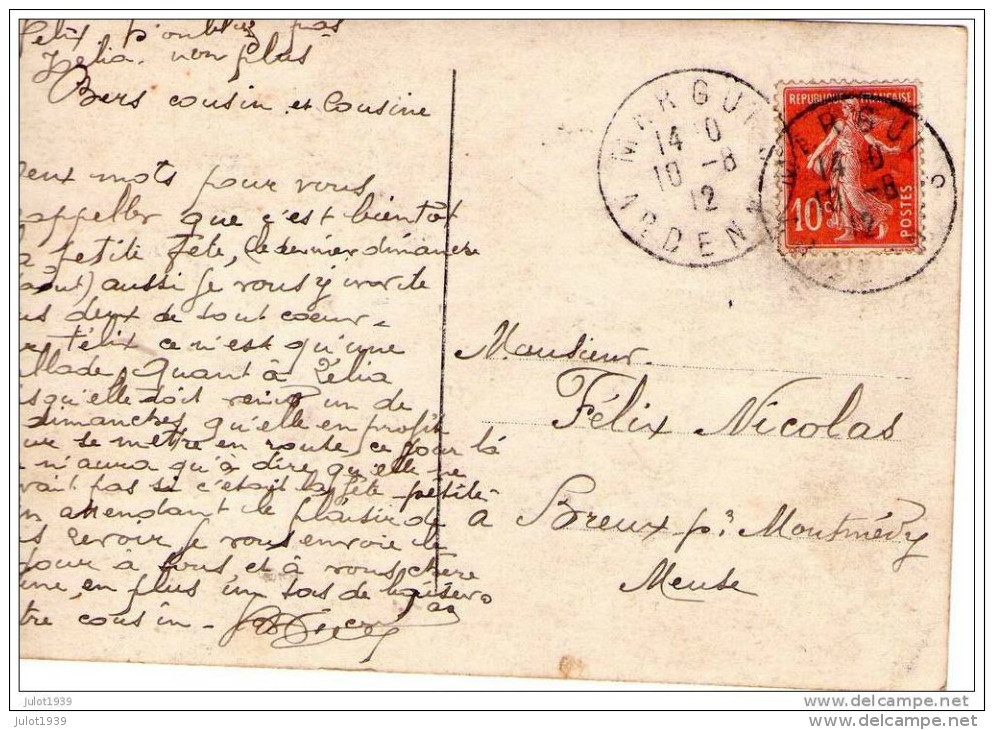 Félix n'oubliez pas
Zélia non plus
Bers cousin et Cousine
deux mots pour vous
rappeller que c'est bientot
la petite fête, (le dernier dimanche
aout) aussi je vous y invite
deux de tout coeur
Félix ce n'est qu'une
Quant à Zélia
qu'elle doit venir un de
dimanches, qu'elle en profite
se metre en route, ce jour là
n'aura qu'à dire qu'elle ne
vait pas si c'était la fête petite
en attendant le plaisir de
revoir, je vous envoie le
jour à tous et à vous chère
ine, en plus un tas de baisers
tre cousin
MARGUT
14 0
10 -8
12
ARDENN
REPUBLIQUE FRANÇAISE
10c
POSTES
MARGUT
14 0
10 -8
12
Monsieur
Félix Nicolas
à Breux pr Montmédy
Meuse
julot1939
julot1939
www.delcampe.net
www.delcampe.net